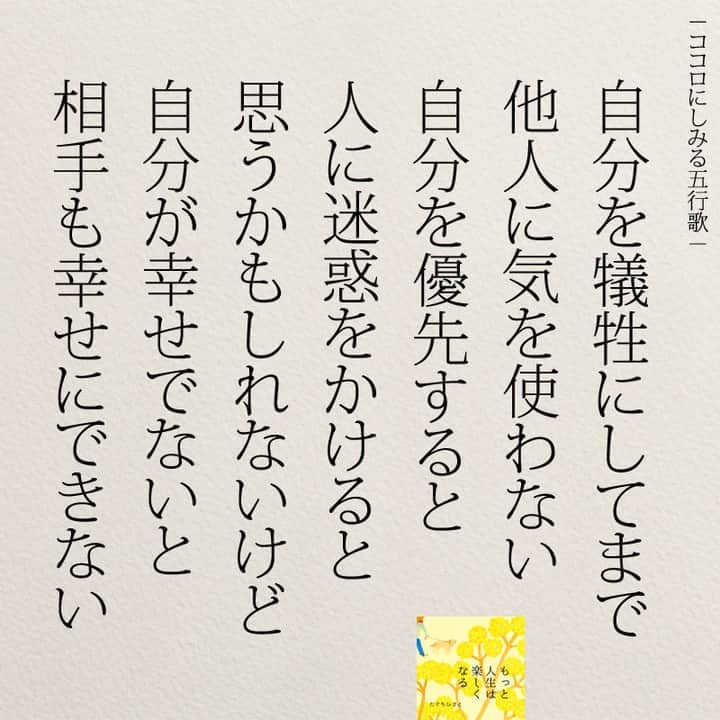 ー ココロにしみる五行歌 ー
自分を犠牲にしてまで
他人に気を使わない
自分を優先すると
人に迷惑をかけると
思うかもしれないけど
自分が幸せでないと
相手も幸せにできない
もっと
人生は
楽しく
なる
たぐちひさと